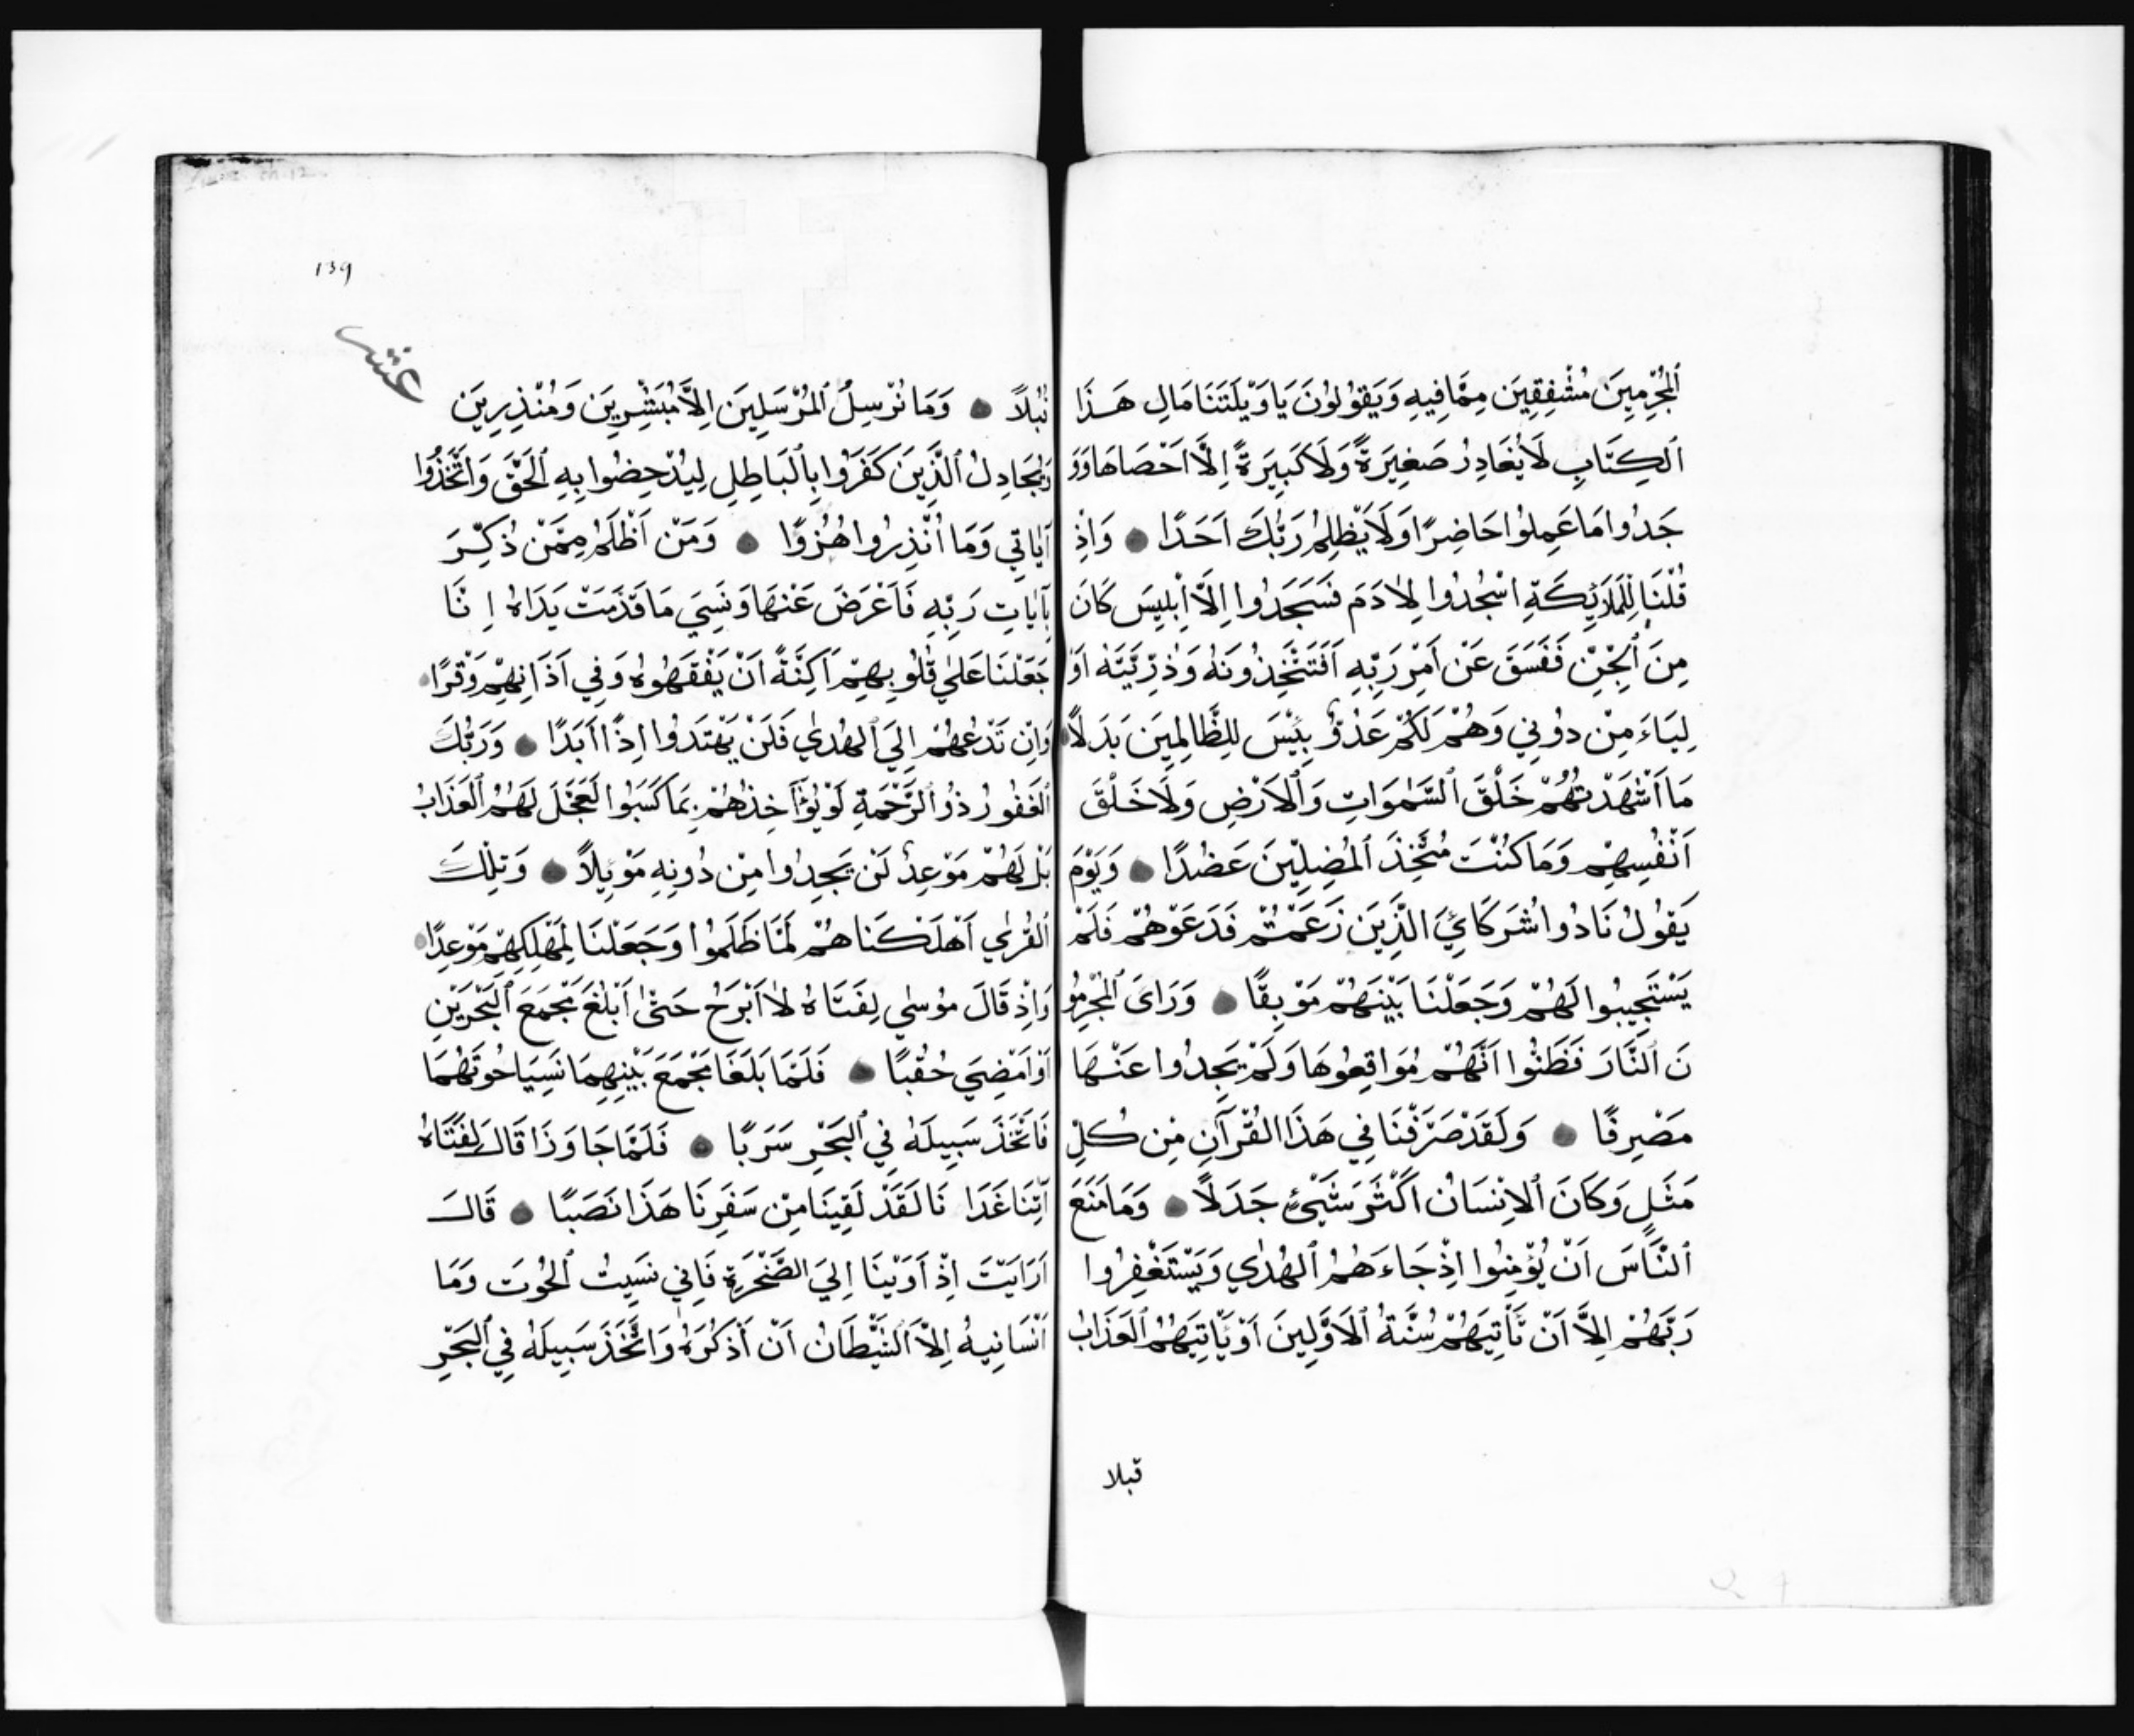 ٱلْمُجْرِمِينَ مُشْفِقِينَ مِمَّا فِيهِ وَيَقُولُونَ يَا وَيْلَتَنَا مَالِ هَـذَا
ٱلْكِتَابِ لَا يُغَادِرُ صَغِيرَةً وَلَا كَبِيرَةً اِلَّا اَحْصَاهَا وَوَ
جَدُوا مَا عَمِلُوا حَاضِرًا وَلَا يَظْلِمُ رَبُّكَ اَحَدًا ● وَاِذْ
قُلْنَا لِلْمَلَائِكَةِ اسْجُدُوا لِاٰدَمَ فَسَجَدُوا اِلَّا اِبْلِيسَ كَانَ
مِنَ ٱلْجِنِّ فَفَسَقَ عَنْ اَمْرِ رَبِّهِ اَفَتَتَّخِذُونَهُ وَذُرِّيَّتَهُ اَوْ
لِيَاءَ مِنْ دُونِي وَهُمْ لَكُمْ عَدُوٌّ بِئْسَ لِلظَّالِمِينَ بَدَلًا ●
مَا اَشْهَدْتُهُمْ خَلْقَ ٱلسَّمٰوَاتِ وَٱلْاَرْضِ وَلَا خَلْقَ
اَنْفُسِهِمْ وَمَا كُنْتَ مُتَّخِذَ ٱلْمُضِلِّينَ عَضُدًا ● وَيَوْمَ
يَقُولُ نَادُوا شُرَكَائِيَ الَّذِينَ زَعَمْتُمْ فَدَعَوْهُمْ فَلَمْ
يَسْتَجِيبُوا لَهُمْ وَجَعَلْنَا بَيْنَهُمْ مَوْبِقًا ● وَرَاَىَ ٱلْمُجْرِمُو
نَ ٱلنَّارَ فَظَنُّوا اَنَّهُمْ مُوَاقِعُوهَا وَلَمْ يَجِدُوا عَنْهَا
مَصْرِفًا ● وَلَقَدْ صَرَّفْنَا فِي هَذَا الْقُرْآنِ مِنْ كُلِّ
مَثَلٍ وَكَانَ ٱلْاِنْسَانُ اَكْثَرَ شَيْئٍ جَدَلًا ● وَمَا مَنَعَ
ٱلنَّاسَ اَنْ يُؤْمِنُوا اِذْ جَاءَهُمُ ٱلْهُدٰي وَيَسْتَغْفِرُوا
رَبَّهُمْ اِلَّا اَنْ تَاْتِيَهُمْ سُنَّةُ ٱلْاَوَّلِينَ اَوْ يَاْتِيَهُمُ ٱلْعَذَابُ
قبلا
139
عشر
قُبُلًا ● وَمَا نُرْسِلُ ٱلْمُرْسَلِينَ اِلَّا مُبَشِّرِينَ وَمُنْذِرِينَ
وَيُجَادِلُ ٱلَّذِينَ كَفَرُوا بِٱلْبَاطِلِ لِيُدْحِضُوا بِهِ ٱلْحَقَّ وَاتَّخَذُوا
آيَاتِي وَمَا اُنْذِرُوا هُزُوًا ● وَمَنْ اَظْلَمُ مِمَّنْ ذُكِّرَ
بِآيَاتِ رَبِّهِ فَاَعْرَضَ عَنْهَا وَنَسِيَ مَا قَدَّمَتْ يَدَاهُ اِنَّا
جَعَلْنَا عَلٰي قُلُوبِهِمْ اَكِنَّةً اَنْ يَفْقَهُوهُ وَفِي آذَانِهِمْ وَقْرًا ●
وَاِنْ تَدْعُهُمْ اِلَيَ ٱلْهُدٰي فَلَنْ يَهْتَدُوا اِذًا اَبَدًا ● وَرَبُّكَ
ٱلْغَفُورُ ذُو ٱلرَّحْمَةِ لَوْ يُؤَاخِذُهُمْ بِمَا كَسَبُوا لَعَجَّلَ لَهُمُ ٱلْعَذَابُ
بَلْ لَهُمْ مَوْعِدٌ لَنْ يَجِدُوا مِنْ دُونِهِ مَوْئِلًا ● وَتِلْكَ
ٱلْقُرٰي اَهْلَكْنَاهُمْ لَمَّا ظَلَمُوا وَجَعَلْنَا لِمَهْلِكِهِمْ مَوْعِدًا ●
وَاِذْ قَالَ مُوسٰي لِفَتَاهُ لَا اَبْرَحُ حَتّٰى اَبْلُغَ مَجْمَعَ ٱلْبَحْرَيْنِ
اَوْ اَمْضِيَ حُقُبًا ● فَلَمَّا بَلَغَا مَجْمَعَ بَيْنِهِمَا نَسِيَا حُوتَهُمَا
فَاتَّخَذَ سَبِيلَهُ فِي ٱلْبَحْرِ سَرَبًا ● فَلَمَّا جَاوَزَا قَالَ لِفَتَاهُ
آتِنَا غَدَا نَا لَقَدْ لَقِينَا مِنْ سَفَرِنَا هَذَا نَصَبًا ● قَالَ
اَرَاَيْتَ اِذْ اَوَيْنَا اِلَيَ الصَّخْرَةِ فَاِنِي نَسِيتُ ٱلْحُوتَ وَمَا
اَنْسَانِيهُ اِلَّا ٱلشَّيْطَانُ اَنْ اَذْكُرَهُ وَاتَّخَذَ سَبِيلَهُ فِي ٱلْبَحْرِ